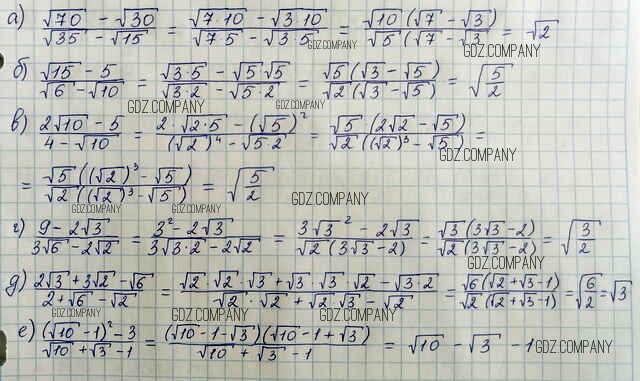 а) (√70 − √30)/(√35 − √15) = (√7·10 − √3·10)/(√7·5 − √3·5) = √10(√7 − √3)/√5(√7 − √3) = √2
GDZ.COMPANY GDZ.COMPANY
б) (√15 − 5)/(√6 − √10) = (√3·5 − √5√5)/(√3·2 − √5·2) = √5(√3 − √5)/√2(√3 − √5) = √(5/2)
GDZ.COMPANY GDZ.COMPANY
в) (2√10 − 5)/(4 − √10) = (2·√2·5 − (√5)²)/((√2)⁴ − √5·2) = √5(2√2 − √5)/√2((√2)³ − √5) =
GDZ.COMPANY
= √5((√2)³ − √5)/√2((√2)³ − √5) = √(5/2)
GDZ.COMPANY
GDZ.COMPANY GDZ.COMPANY
г) (9 − 2√3)/(3√6 − 2√2) = (3² − 2√3)/(3√3·2 − 2√2) = (3√3² − 2√3)/√2(3√3 − 2) = √3(3√3 − 2)/√2(3√3 − 2) = √(3/2)
GDZ.COMPANY
д) (2√3 + 3√2 − √6)/(2 + √6 − √2) = (√2·√2·√3 + √3·√3·√2 − √3·2)/(√2·√2 + √2·√3 − √2) = √6(√2 + √3 − 1)/√2(√2 + √3 − 1) = √(6/2) = √3
GDZ.COMPANY GDZ.COMPANY
е) ((√10 − 1)² − 3)/(√10 + √3 − 1) = (√10 − 1 − √3)(√10 − 1 + √3)/(√10 + √3 − 1) = √10 − √3 − 1
GDZ.COMPANY